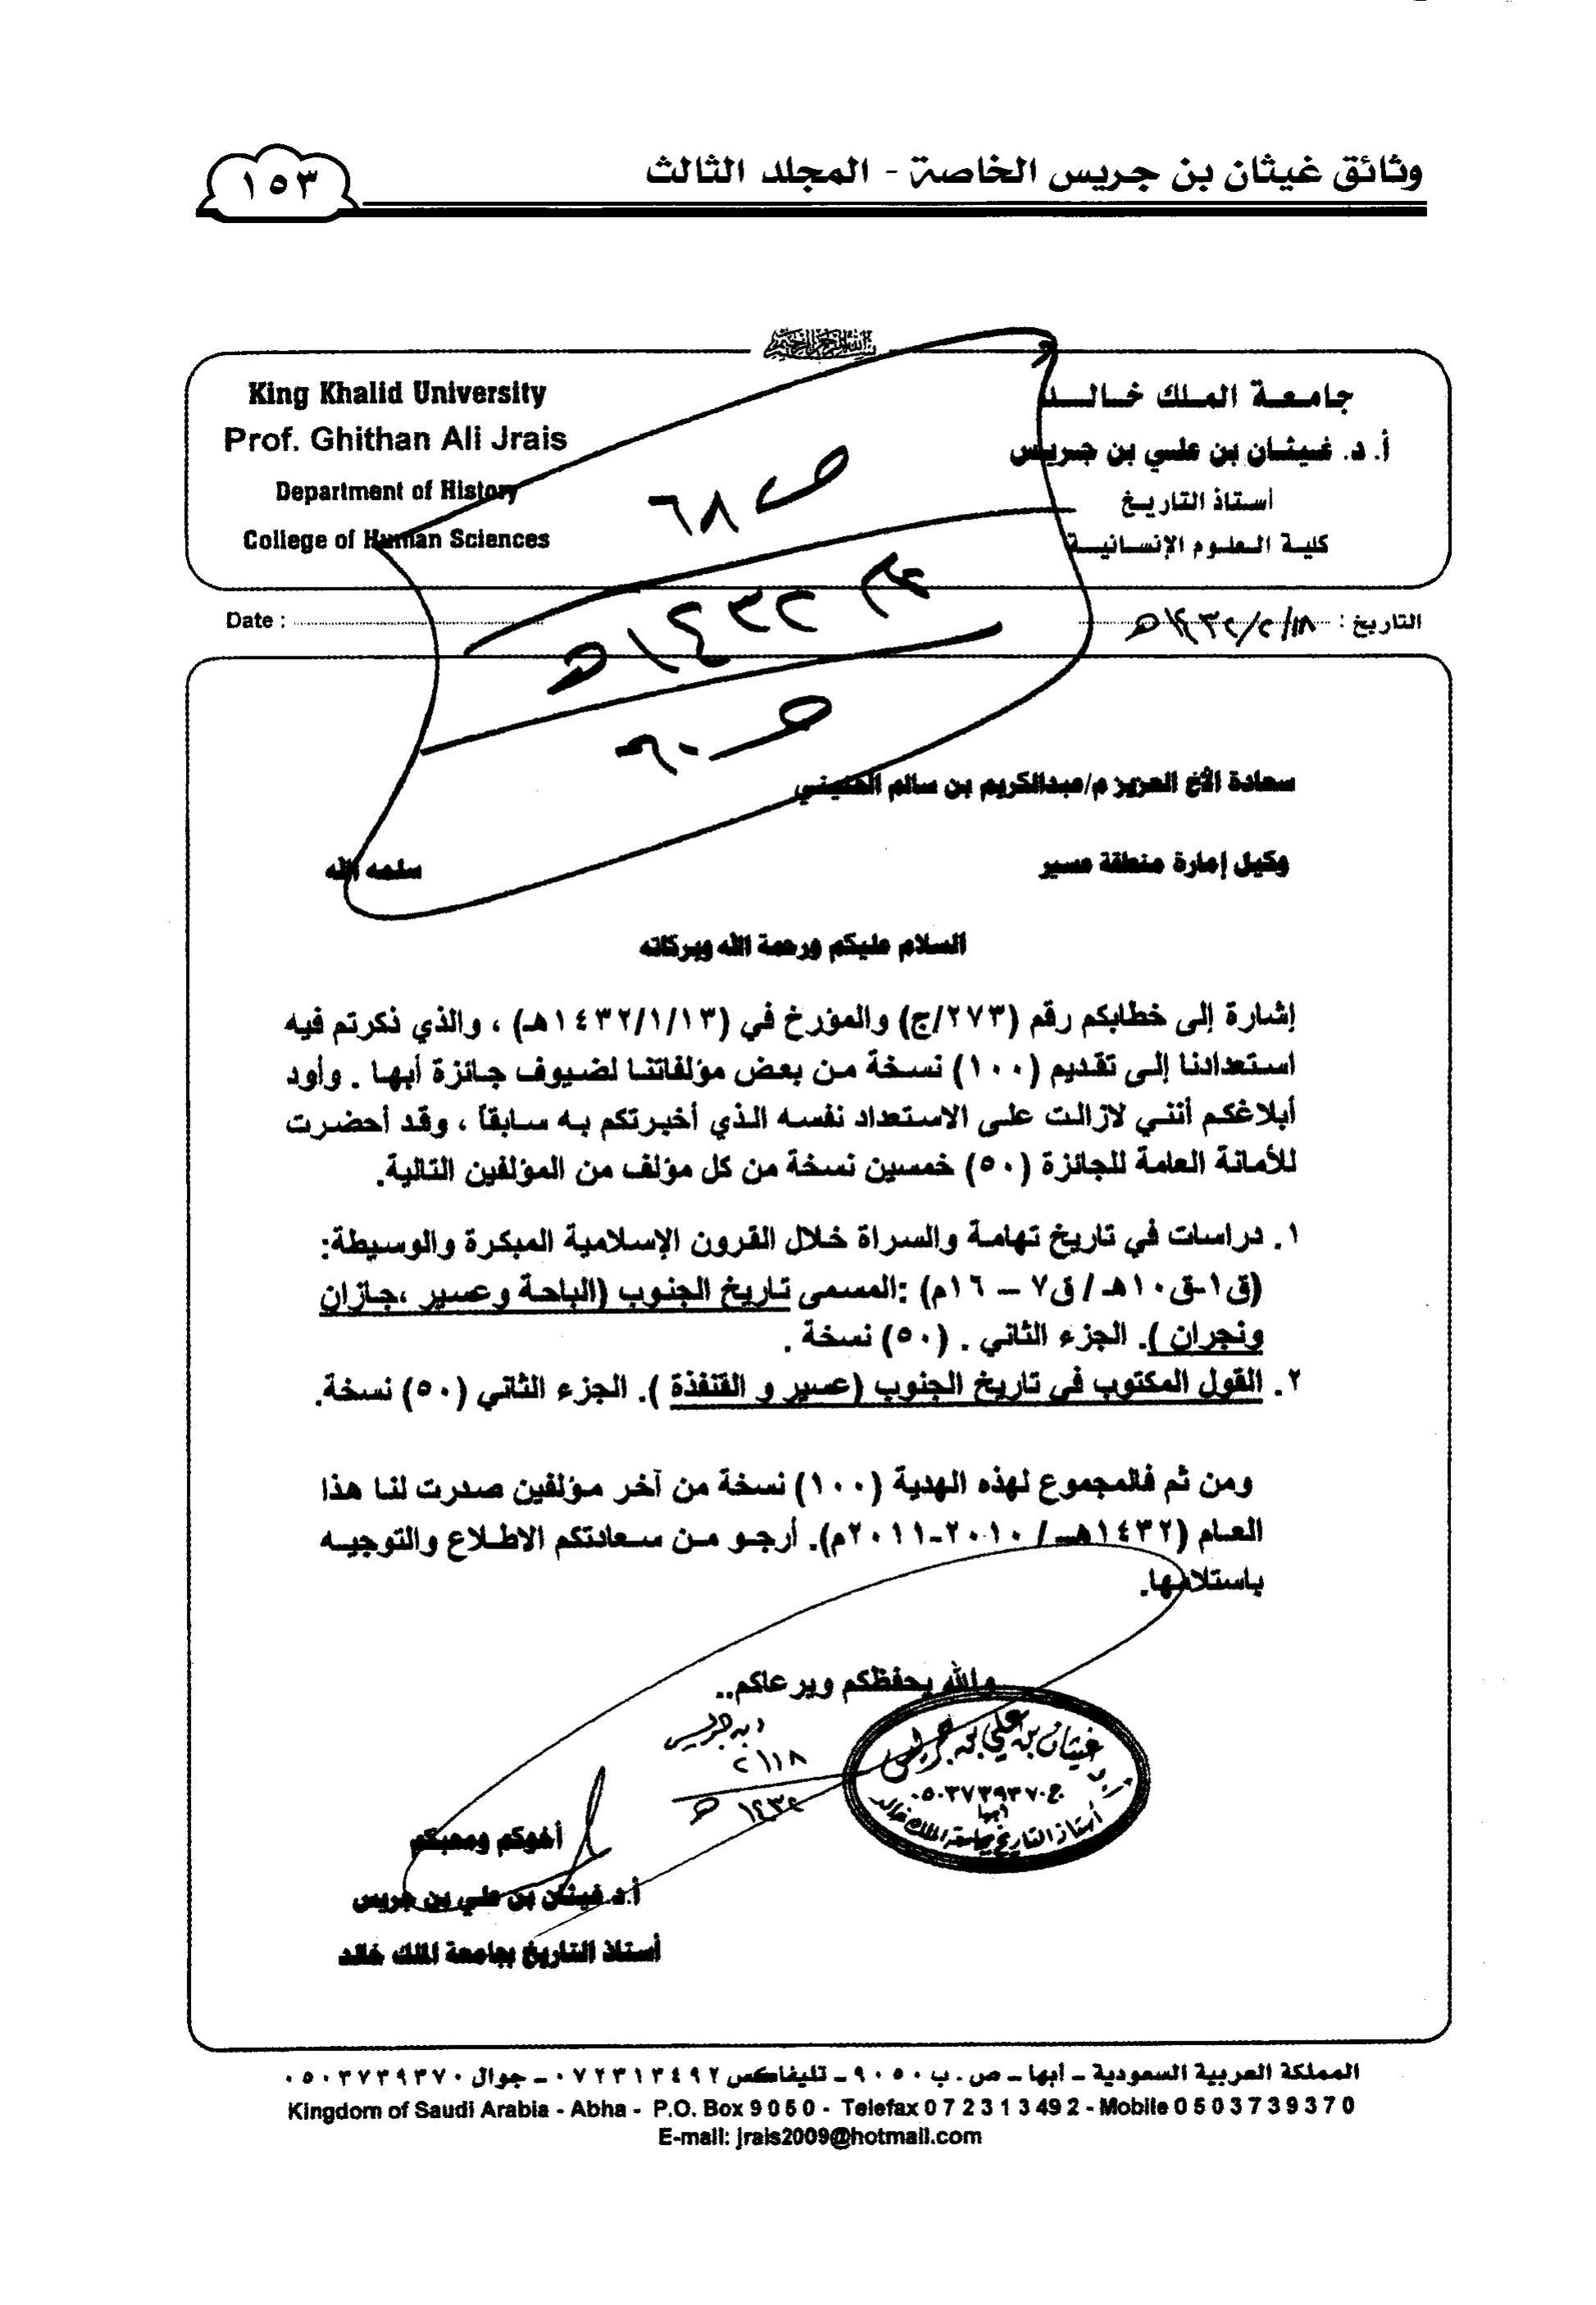 وثائق غيثان بن جريس الخاصة - المجلد الثالث
١٥٣
بسم الله الرحمن الرحيم
جامعة الملك خالد
أ. د. غيثان بن علي بن جريس
أستاذ التاريخ
كلية العلوم الإنسانية
King Khalid University
Prof. Ghithan Ali Jrais
Department of History
College of Human Sciences
ص ٦٨
عام ١٤٣٢هـ
ص ٦٠
التاريخ : ١٤٣٢/٢/١٨هـ
Date :
سعادة الأخ العزيز م/عبدالكريم بن سالم الحنيني
وكيل إمارة منطقة عسير
سلمه الله
السلام عليكم ورحمة الله وبركاته
إشارة إلى خطابكم رقم (٢٧٣/ج) والمؤرخ في (١٤٣٢/١/١٣هـ) ، والذي ذكرتم فيه
استعدادنا إلى تقديم (١٠٠) نسخة من بعض مؤلفاتنا لضيوف جائزة أبها . وأود
أبلاغكم أنني لازالت على الاستعداد نفسه الذي أخبرتكم به سابقاً ، وقد أحضرت
للأمانة العامة للجائزة (٥٠) خمسين نسخة من كل مؤلف من المؤلفين التالية.
١. دراسات في تاريخ تهامة والسراة خلال القرون الإسلامية المبكرة والوسيطة:
(ق١-ق١٠هـ / ق٧ – ١٦م) :المسمى تاريخ الجنوب (الباحة وعسير ،جازان
ونجران ). الجزء الثاني . (٥٠) نسخة .
٢. القول المكتوب في تاريخ الجنوب (عسير و القنفذة ). الجزء الثاني (٥٠) نسخة.
ومن ثم فالمجموع لهذه الهدية (١٠٠) نسخة من آخر مؤلفين صدرت لنا هذا
العام (١٤٣٢هـ / ٢٠١٠-٢٠١١م). أرجو من سعادتكم الاطلاع والتوجيه
باستلامها.
والله يحفظكم ويرعاكم..
بن جريس
٢/١٨
١٤٣٢هـ
أ.د غيثان بن علي بن جريس
ج.٠٥٠٣٧٣٩٣٧٠
أبها
أستاذ التاريخ بجامعة الملك خالد
أخوكم ومحبكم
أ.د.غيثان بن علي بن جريس
أستاذ التاريخ بجامعة الملك خالد
المملكة العربية السعودية – أبها – ص . ب ٩٠٥٠ – تليفاكس ٠٧٢٣١٣٤٩٢ – جوال ٠٥٠٣٧٣٩٣٧٠
Kingdom of Saudi Arabia - Abha - P.O. Box 9 0 5 0 - Telefax 0 7 2 3 1 3 49 2 - Mobile 0 5 0 3 7 3 9 3 7 0
E-mail: jrais2009@hotmail.com